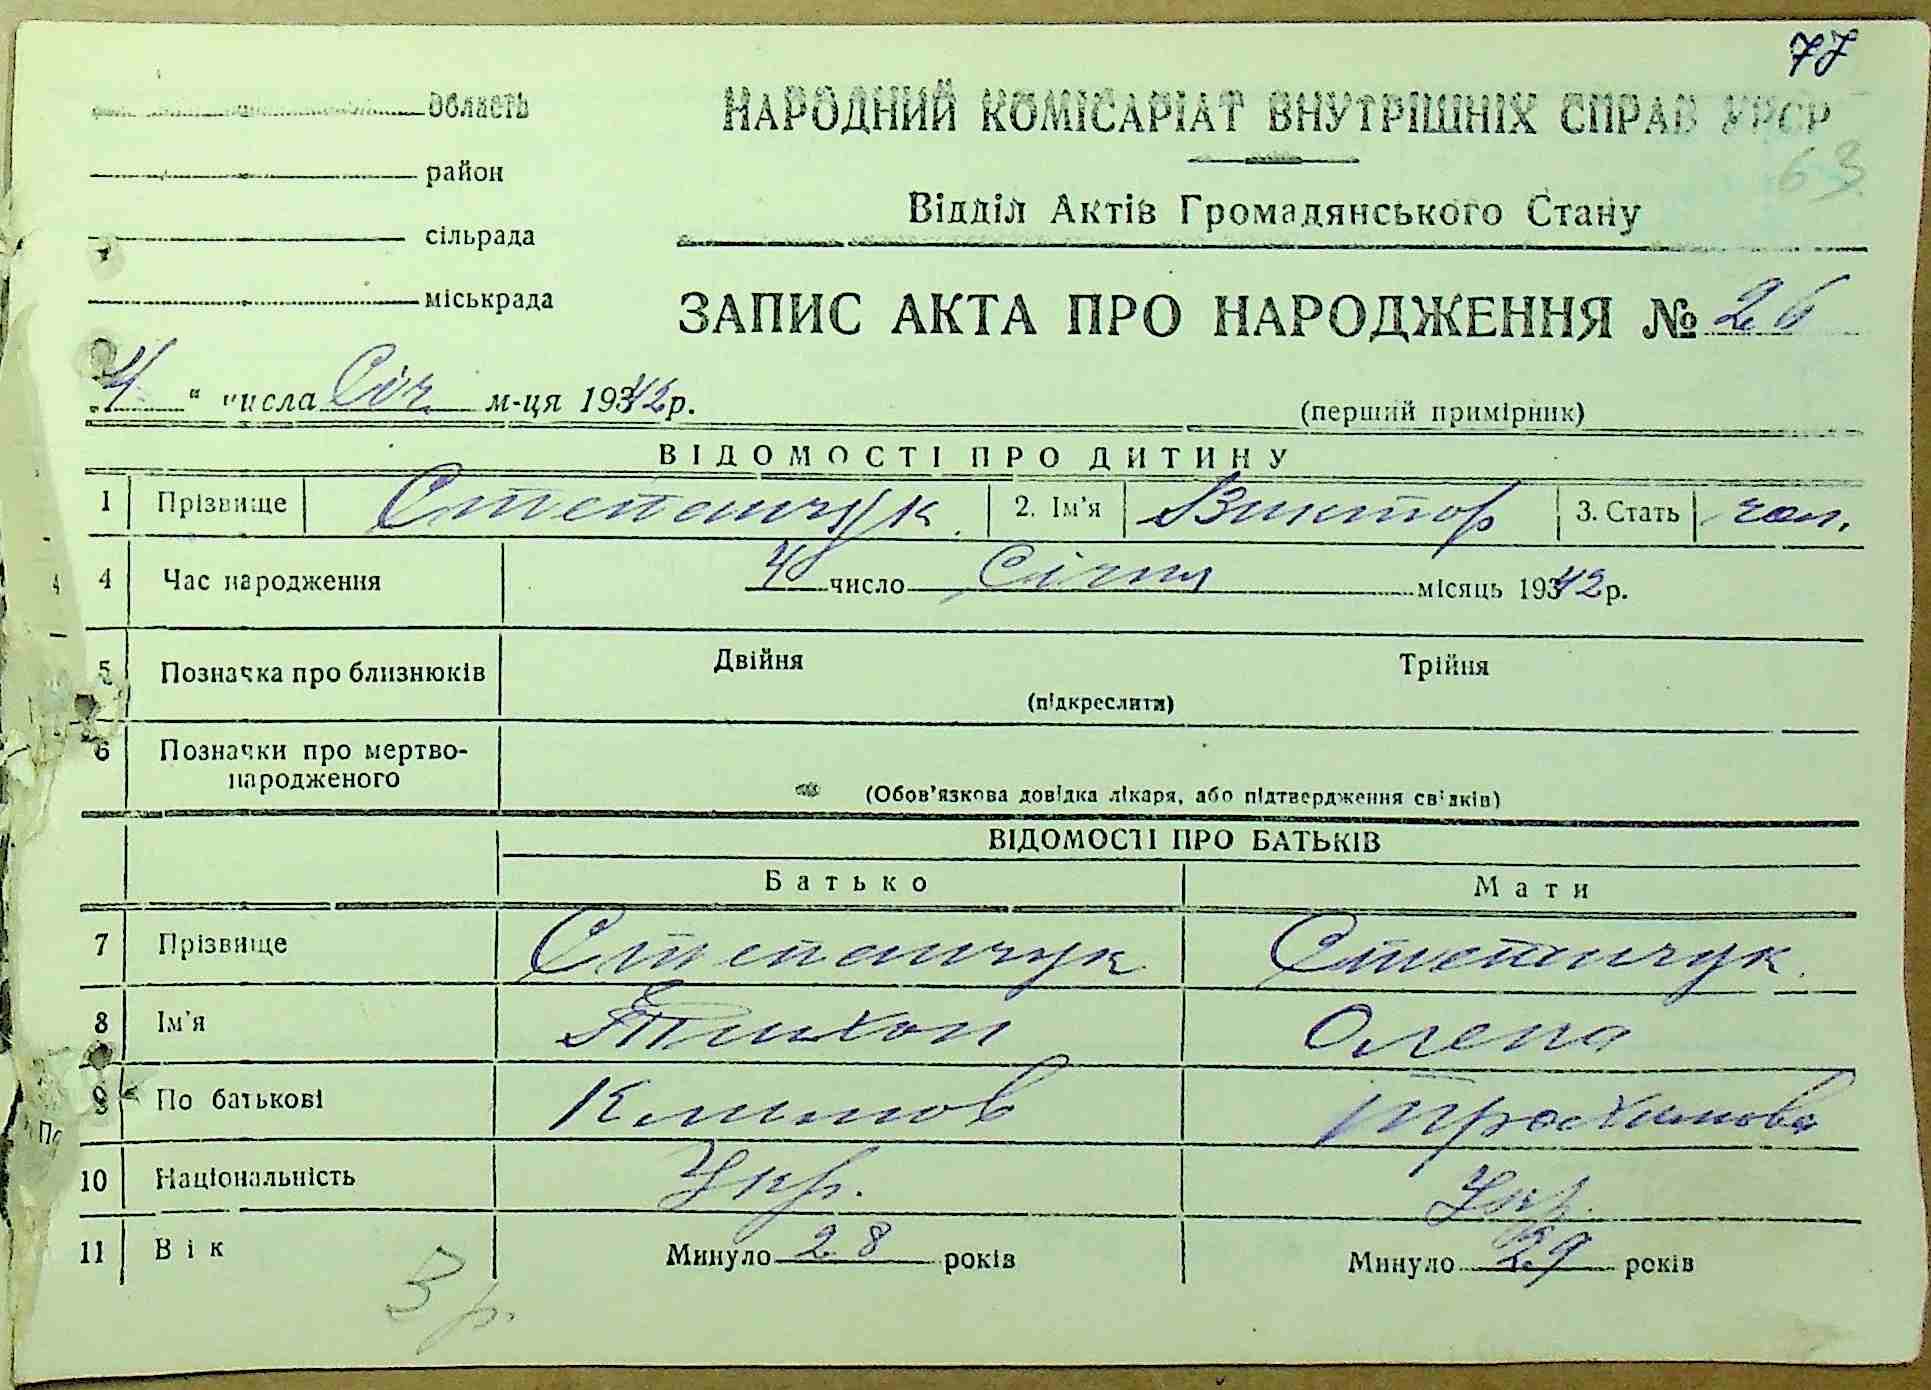 77
область
НАРОДНИЙ КОМІСАРІАТ ВНУТРІШНІХ СПРАВ УРСР
63
район
Відділ Актів Громадянського Стану
сільрада
міськрада
ЗАПИС АКТА ПРО НАРОДЖЕННЯ № 26
4 " числа Січ. м-ця 1942 р.
(перший примірник)
ВІДОМОСТІ ПРО ДИТИНУ
1 Прізвище Степанчук. 2. Ім'я Виктор 3. Стать чол.
4 Час народження 4 число Січня місяць 1942 р.
5 Позначка про близнюків Двійня Трійня
(підкреслити)
6 Позначки про мертво-
народженого
(Обов'язкова довідка лікаря, або підтвердження свідків)
ВІДОМОСТІ ПРО БАТЬКІВ
Батько Мати
7 Прізвище Степанчук Степанчук.
8 Ім'я Тихон Олена
9 По батькові Климов Трохимова
10 Національність Укр. Укр.
11 Вік Минуло 28 років Минуло 29 років
3 р.